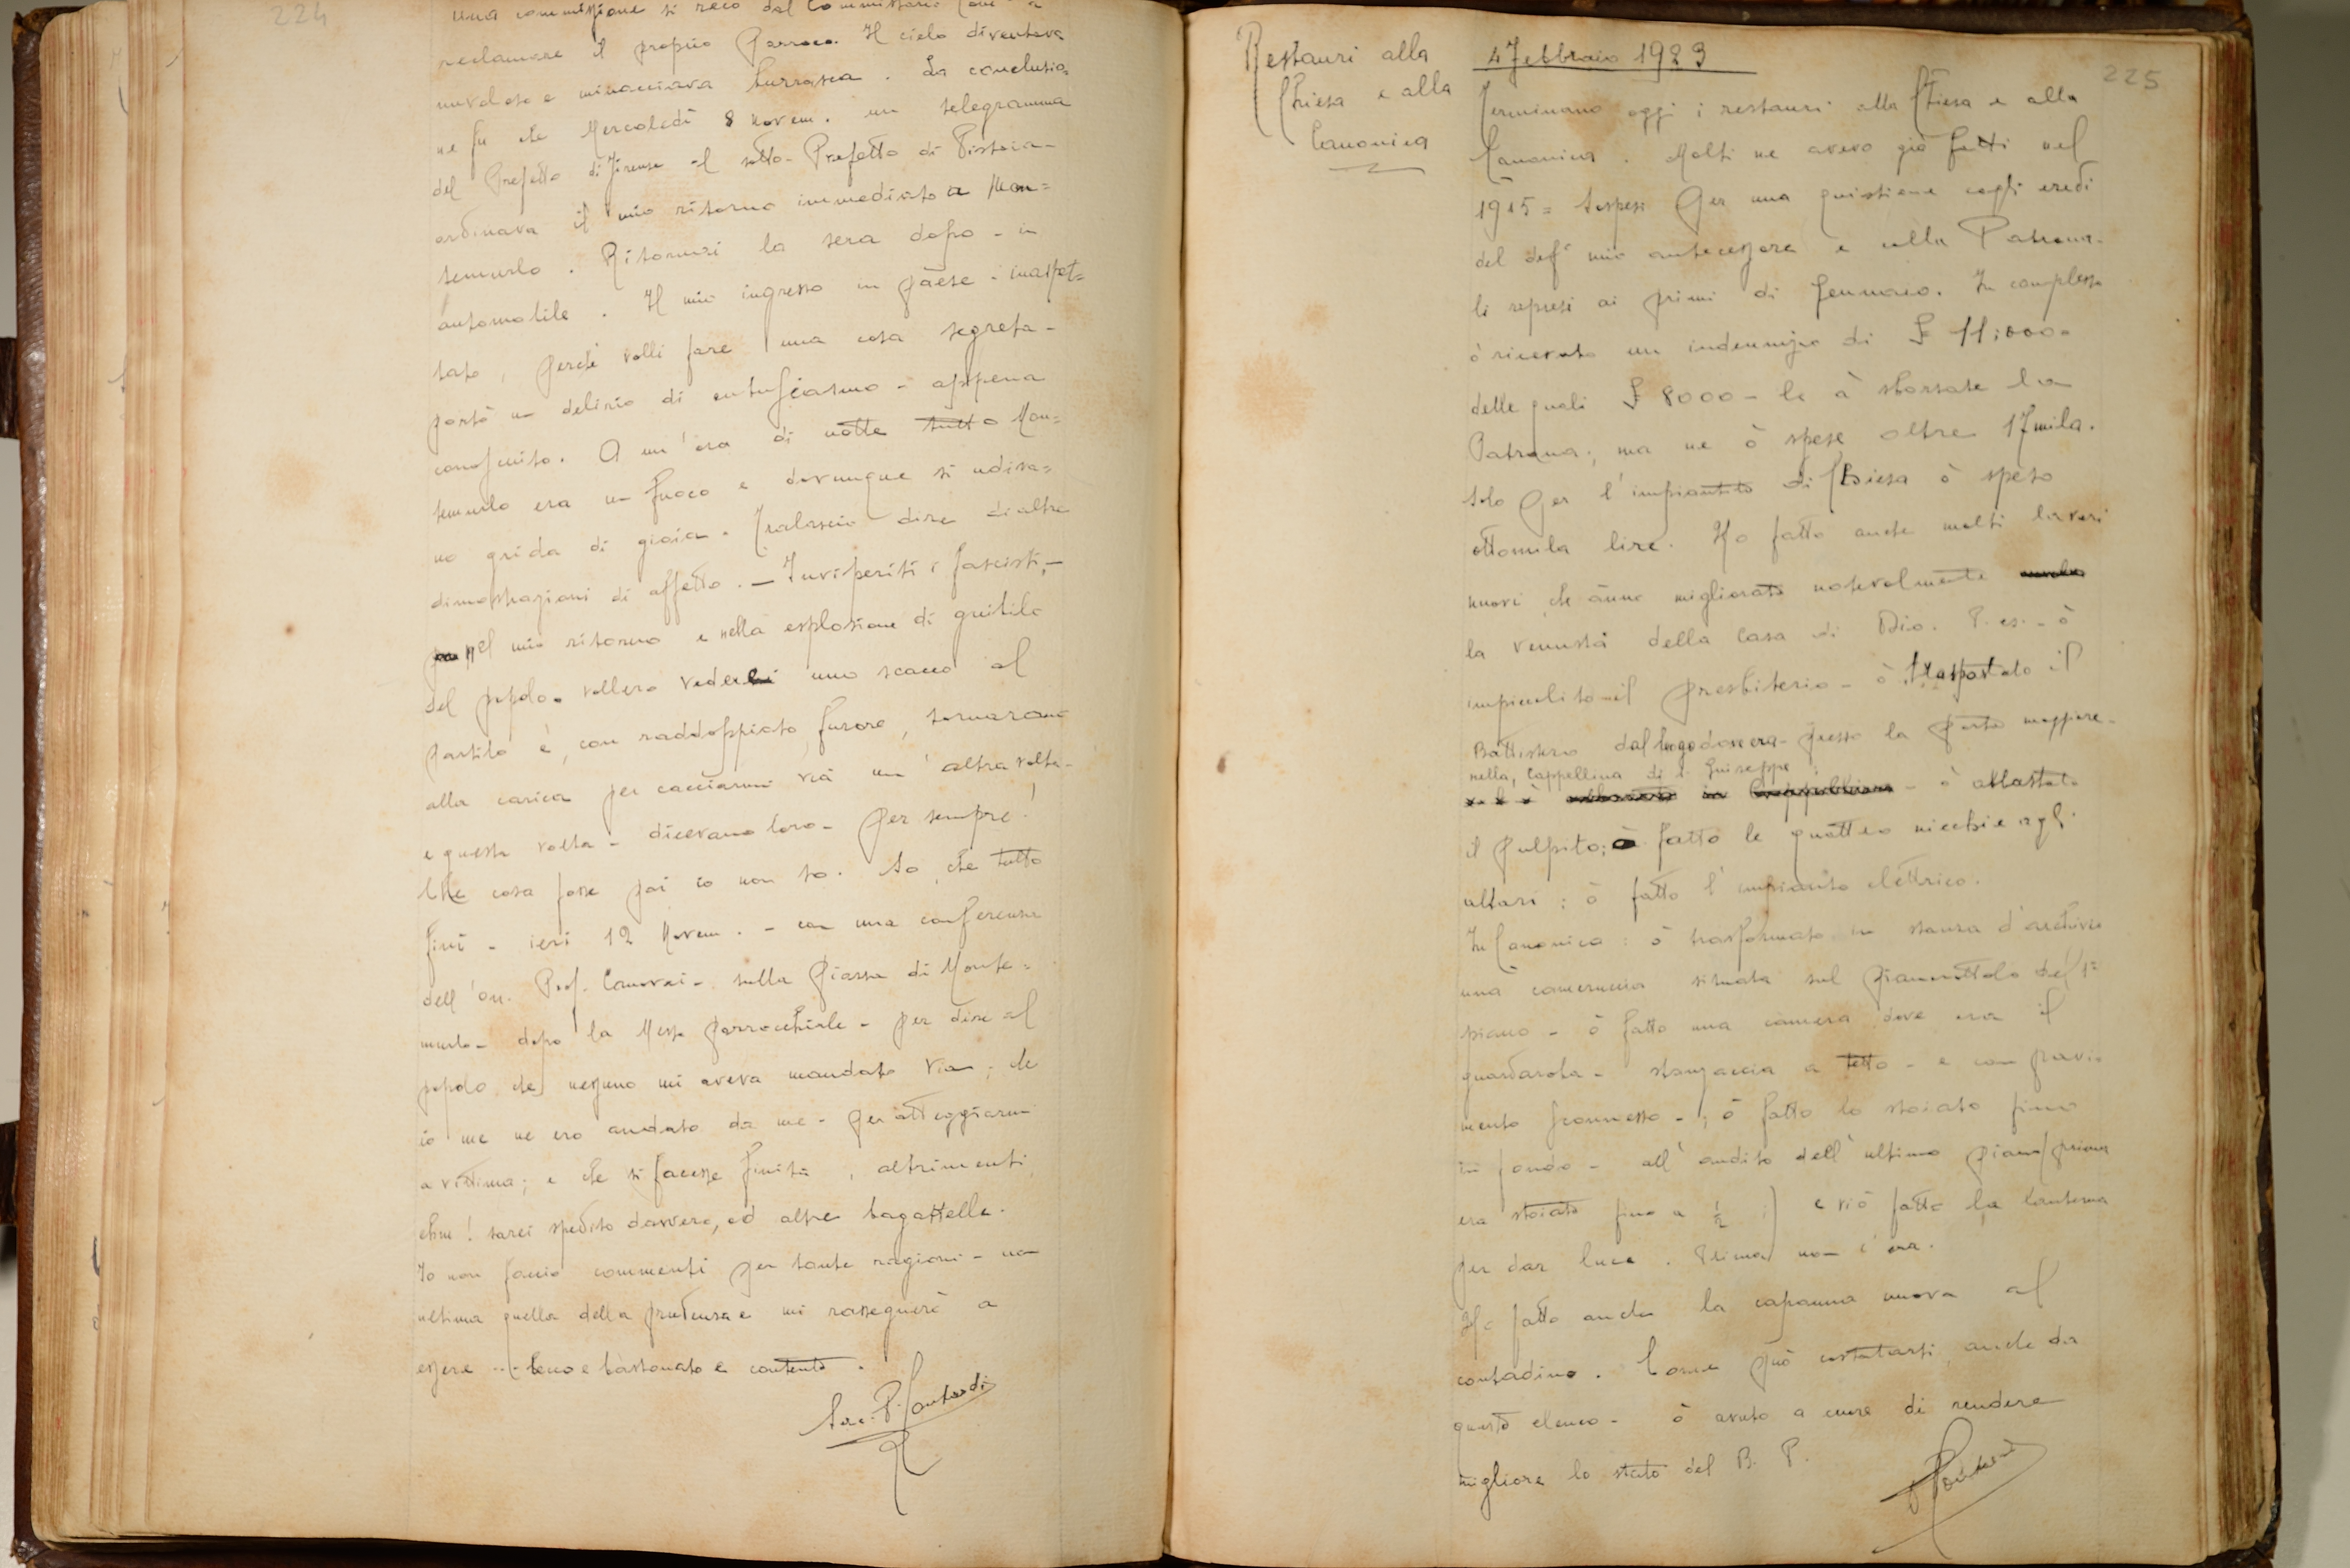 224
una commissione si recò dal Commissario
reclamare il proprio Parroco. Il cielo diventava
nuvoloso e minacciava burrasca. La conclusio=
ne fu che Mercoledì 8 Novem. un telegramma
del Prefetto di Firenze al sotto-Prefetto di Pistoia -
ordinava il mio ritorno immediato a Mon=
temurlo. Ritornai la sera dopo - in
automobile. Il mio ingresso in paese - inaspet=
tato, perché volli fare una cosa segreta -
portò un delirio di entusiasmo - appena
conosciuto. A un'ora di notte tutto Mon=
temurlo era un fuoco e dovunque si udiva=
no grida di gioia. Tralascio dire di altre
dimostrazioni di affetto. - Inviperiti i fascisti, -
nel mio ritorno e nella esplosione di giubilo
del popolo vollero vederci uno scacco al
partito e, con raddoppiato furore, tornarono
alla carica per cacciarmi via un'altra volta -
e questa volta - dicevano loro - per sempre!
Che cosa fosse poi io non so. So, che tutto
finì - ieri 12 Novem. - con una conferenza
dell'on. Prof. Canovai - sulla Piazza di Monte=
murlo - dopo la Messa parrocchiale - per dire al
popolo che nessuno mi aveva mandato via; che
io me ne ero andato da me - per atteggiarmi
a vittima; e che si facesse finita, altrimenti
ehm! sarei spedito davvero, ed altre bagattelle.
Io non faccio commenti per tante ragioni - non
ultima quella della prudenza e mi rassegnerò a
essere ... becco e bastonato e contento.
Sac. P.
225
Restauri alla
Chiesa e alla
Canonica
4 Febbraio 1923
Terminano oggi i restauri alla Chiesa e alla
Canonica. Molti ne avevo già fatti nel
1915 = sospesi per una quistione cogli eredi
del def° mio antecessore e colla Patrona -
li ripresi ai primi di Gennaio. In complesso
ò ricevuto un indennizzo di £ 11.000 =
delle quali £ 8000 - le à sborsate la
Patrona; ma ne ò spese oltre 17 mila.
Solo per l'impiantito di Chiesa ò speso
ottomila lire. Ho fatto anche molti lavori
nuovi che ànno migliorato notevolmente
la venustà della Casa di Dio. P. es. - ò
impiccolito il presbiterio - ò trasportato il
Battistero dal luogo dove era - presso la porta maggiore -
nella Cappellina di S. Giuseppe;
- ò abbassato
il pulpito; ò fatto le quattro nicchie agli
altari; ò fatto l'impianto elettrico.
In Canonica: ò trasformato in stanza d'archivio
una cameruccia situata sul pianerottolo del 1°
piano - ò fatto una camera dove era il
guardaroba - stanzaccia a tetto - e con pavi=
mento sconnesso -; ò fatto lo stoiato fino
in fondo - all'andito dell'ultimo piano (prima
era stoiato fino a ½ ) e vi ò fatto la lanterna
per dar luce. Prima non c'era.
Ho fatto anche la capanna nuova al
contadino. Come può constatarsi, anche da
questo elenco - ò avuto a cuore di rendere
migliore lo stato del B. P.